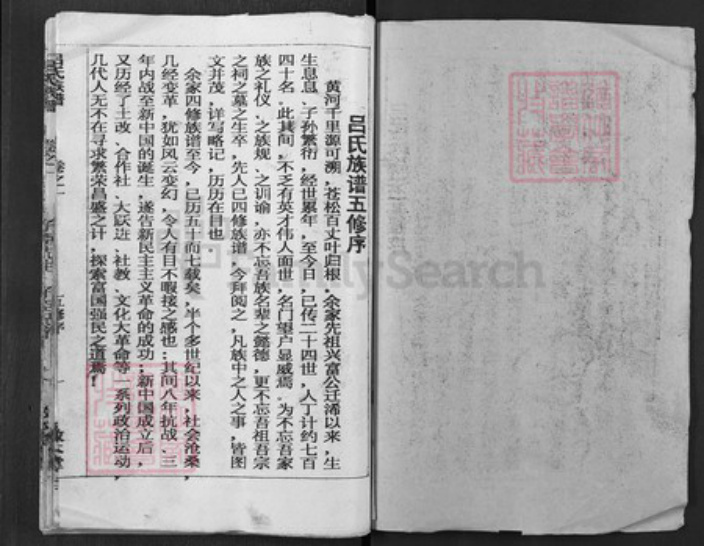 吕氏族谱五修序
黄河千里源可溯，苍松百丈叶归根，余家先祖兴富公迁浠以来，生
生息息、子孙繁衍，经世累年，至今日，已传二十四世，人丁计约七百
四十名。此其间，不乏有英才伟人面世，名门望户显威焉。为不忘吾家
族之礼仪、之族规、之训谕，亦不忘吾族名辈之懿德，更不忘吾祖吾宗
之祠之墓之生卒，先人已四修族谱，今拜阅之，凡族中之人之事，皆图
文并茂，详写略记，历历在目也。
余家四修族谱至今，已历五十而七载矣，半个多世纪以来，社会沧桑，
几经变革，犹如风云变幻，令人有目不暇接之感也：其间八年抗战、三
年内战至新中国的诞生，遂告新民主主义革命的成功；新中国成立后，
又历经了土改、合作社、大跃进、社教、文化大革命等一系列政治运动，
几代人无不在寻求繁荣昌盛之计，探索富国强民之道焉！
吕氏族谱 卷之一 五修序
FamilySearch